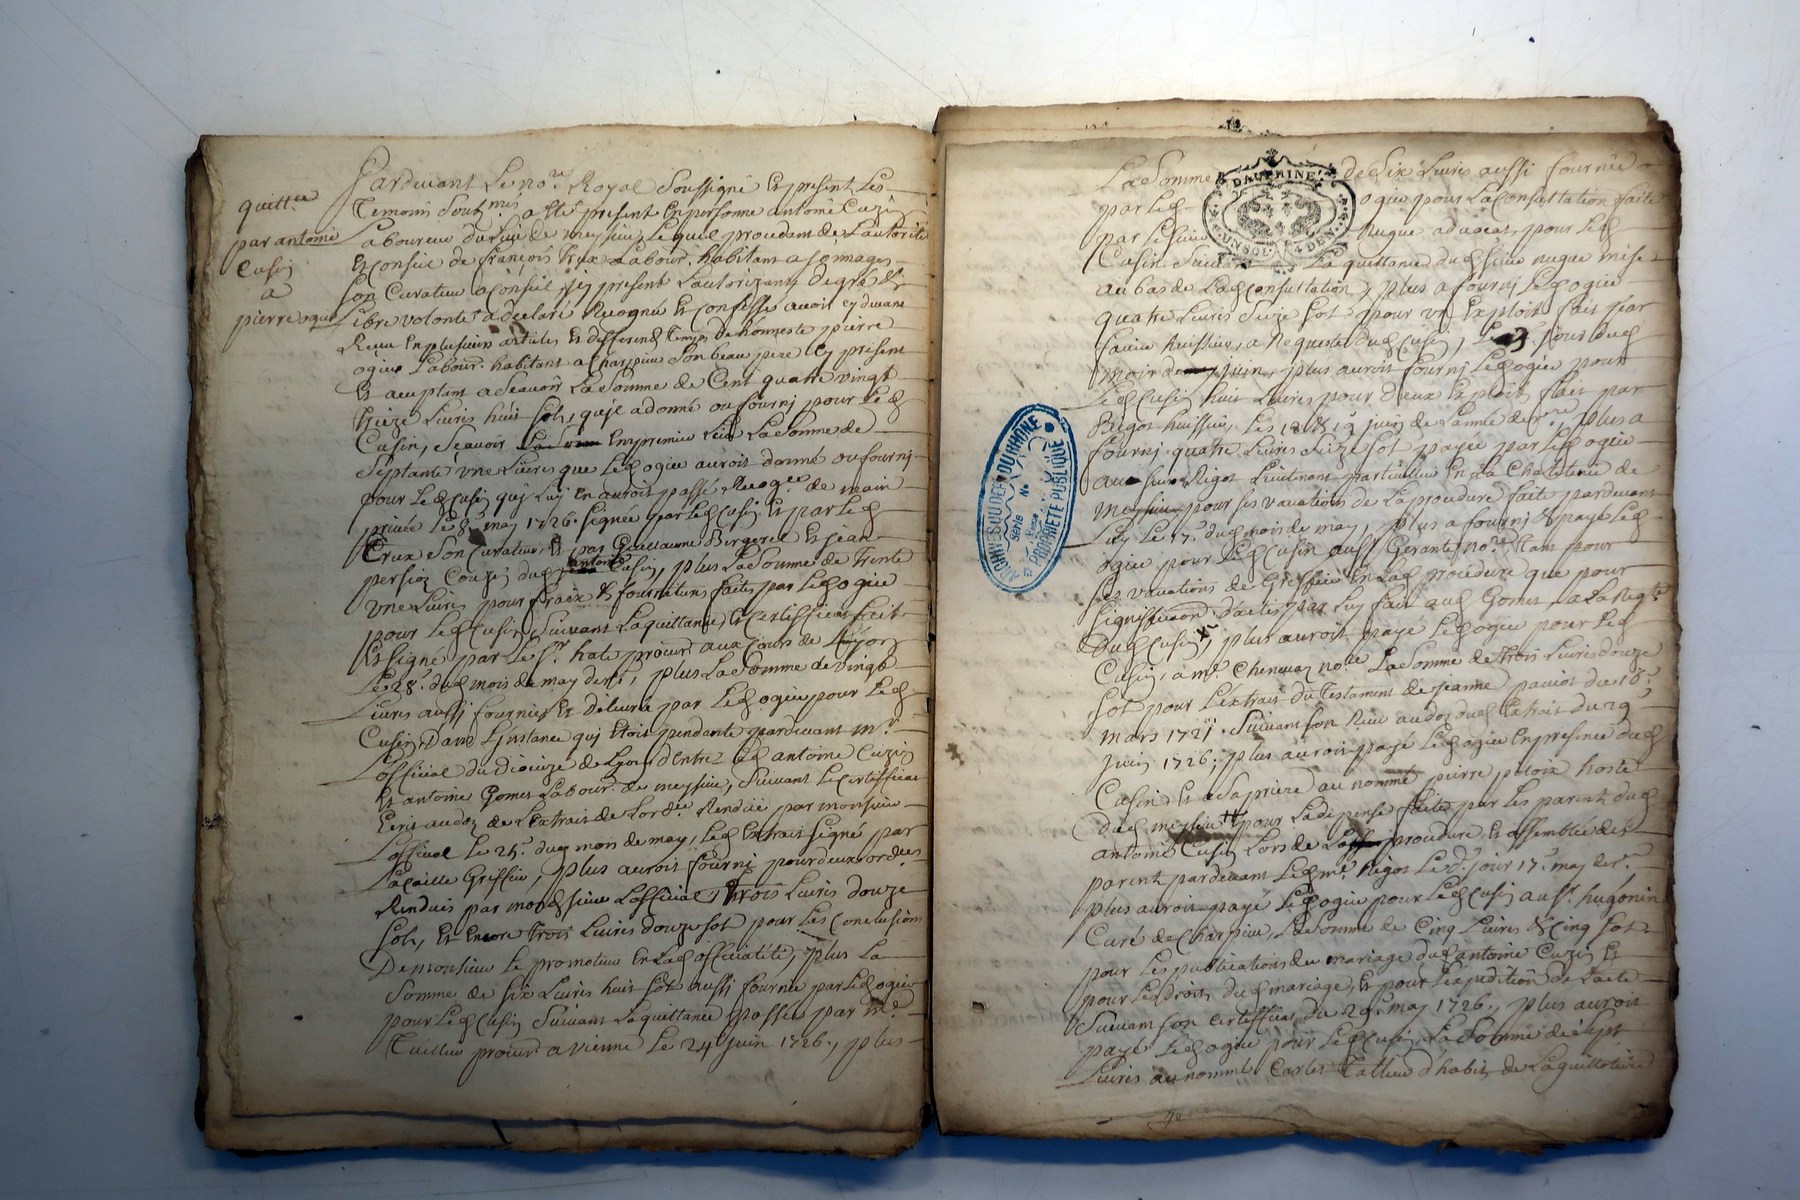 quitt.ce
par antoine
Cusin
a
pierre ogie
Pardevant Le no.re Royal Soussigné Et present Les
Temoins Soubz.nés a esté present En personne antoine Cuzin
Laboureur du Lieu de meyssiez, Lequel procedant de L'autorité
Et conseil de françois Trux Labour. habitant a
Son Curateur a Conseil icy present L'autorizant, de gré et
libre volonté a declaré Recogneu Et confessé avoir cy devant
Receu En plusieurs articles Et differend Temps de honneste pierre
ogier Labour. habitant a Charpieu Son beau pere icy present
Et aceptant a Scavoir La Somme de Cent quatre vingt
treize Livres huit Sols, qu'il a donné ou fourni pour Led
Cusin, Scavoir En premier Lieu La Somme de
Septante une Livres que Led ogier auroit donné ou fourni
pour Led Cusin qui Luy En auroit passé Recog.ce de main
privée Le 8.e may 1726. Signée par Led Cusin Et par Led
Trux Son Curateur, Et par Guillaume Bergeret Et jean
persion Couzin dud antoine Cusin, plus La Somme de Trente
une Livres pour fraix Et fournitures faites par Led ogier
pour Led Cusin Suivant La quittance Et Certifficat fait
Et Signé par Le S.r hate procur. aux Cours de Lyon
Le 28.e dud mois de may der., plus La Somme de vingt
Livres aussi fournies Et delivré par Led ogier pour Led
Cusin, Dans L'instance qui Etoit pendante pardevant m.r
L'official du Dioceze de Lyon d'Entre Led antoine Cuzin
Et antoine Gomet Labour. de meyssiez, Suivant Le certifficat
Ecrit au doz de L'Extrait de L'ord.ce Rendüe par monsieur
L'official Le 25.e dud mois de may, Led Extrait Signé par
Lacaille Greffier, plus auroit fourni pour deux ord.ces
Rendues par mondsieur L'official Trois Livres douze
Sols, Et Encore Trois Livres douze Sol pour Les Conclusions
De monsieur Le promoteur En Lad officialité, plus La
Somme de Six Livres huit Sol aussi fournie par Led ogier
pour Led Cusin Suivant La quittance passée par M.e
Tuillier procur. a vienne Le 24 juin 1726., plus
La Somme de Six Livres aussi fournie
par Led ogier pour La Consultation faite
par Le Sieur Nugue advocat, pour Led
Cusin Suivant La quittance dud Sieur nugue mise
au bas de Lad Consultation, plus a fourni Led ogier
quatre Livres Seize Sol pour un Exploit fait par
huissier, a Requeste dud Cusin, Le 3 Jour dud
mois de juin, plus auroit fourni Led ogier pour
Led Cusin huit Livres pour Deux Exploits fait par
Rigot huissier, Les 18 Et 19 juin de L'année der.re, plus a
fourni quatre Livres Seize Sol payée par Led ogier
au Sieur Rigot Lieutenant particulier En La Chatelenie de
meyssiez pour Ses vacations de La procedure faite pardevant
Luy Le 17.e dud mois de may, plus a fourni Et payé Led
ogier pour Led Cusin au S.r Gerante no.re Tant pour
Ses vacations de Greffier En Lad procedure que pour
Signiffication d'actes par Luy fait aud Gomet, a La Req.te
Dud Cusin, plus auroit payé Led ogier pour Led
Cusin, a m.e Chenevaz no.re La Somme de trois Livres douze
Sol pour L'extrait du Testament de jeanne paviot du 16.e
mars 1721. Suivant Son Receu au doz dud Extrait du 29
juin 1726; plus auroit payé Led ogier En presence dud
Cusin Et a Sa priere au nommé pierre ploix hoste
dud meyssiez pour La depense faite par Les parents dud
antoine Cusin Lors de La procedure Et assemblée de
parents pardevant Led m.e Rigot Led. jour 17.e may der.
plus auroit payé Led ogier pour Led Cusin au S.r hugonin
Curé de Charpieu, La Somme de Cinq Livres Et Cinq Sol
pour Les publications du mariage dud antoine Cuzin Et
pour Le droit dud mariage, Et pour L'expedition de L'acte
Suivant Son certifficat du 29.e may 1726., plus auroit
payé Led ogier pour Led Cusin, La Somme de Sept
Livres au nommé Carles Tallieur d'habits de La guillotiere
DAUPHINÉ
UN SOL 4 DEN
ARCHIVES DU DEP.T DU RHONE
Série
No
PROPRIÉTÉ PUBLIQUE